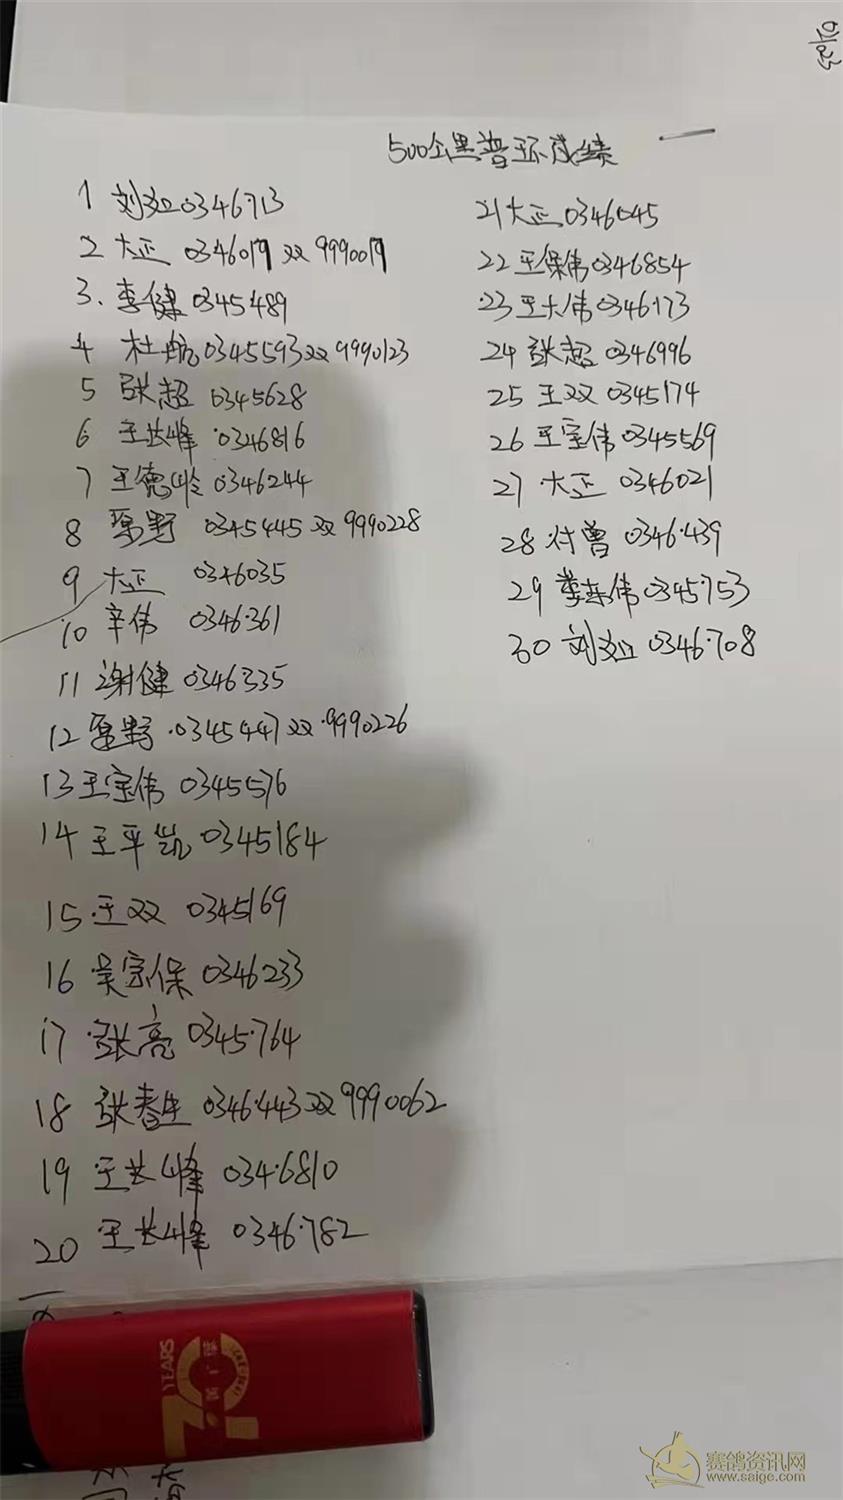 500公里普环成绩
1 刘如0346713
2 大正 0346019 双9990019
3. 李健0345489
4 杜航0345593双9990123
5 张超 0345628
6 王长峰 0346816
7 王德岭 0346244
8 原野 0345445双9990228
9 大正 0346035
10 辛伟 0346361
11 谢健 0346335
12 原野 0345447双9990226
13 王宝伟 0345576
14 王平凯 0345184
15 王双 0345169
16 吴宗保 0346233
17 张亮 0345764
18 张春生 0346443双9990062
19 王长峰 0346810
20 王长峰 0346782
21 大正 0346045
22 王保伟0346854
23 王大伟 0346173
24 张超 0346996
25 王双 0345174
26 王宝伟 0345569
27 大正 0346021
28 付曾 0346439
29 李东伟 0345753
30 刘如 0346708
YEARS
赛鸽资讯网
www.saige.com